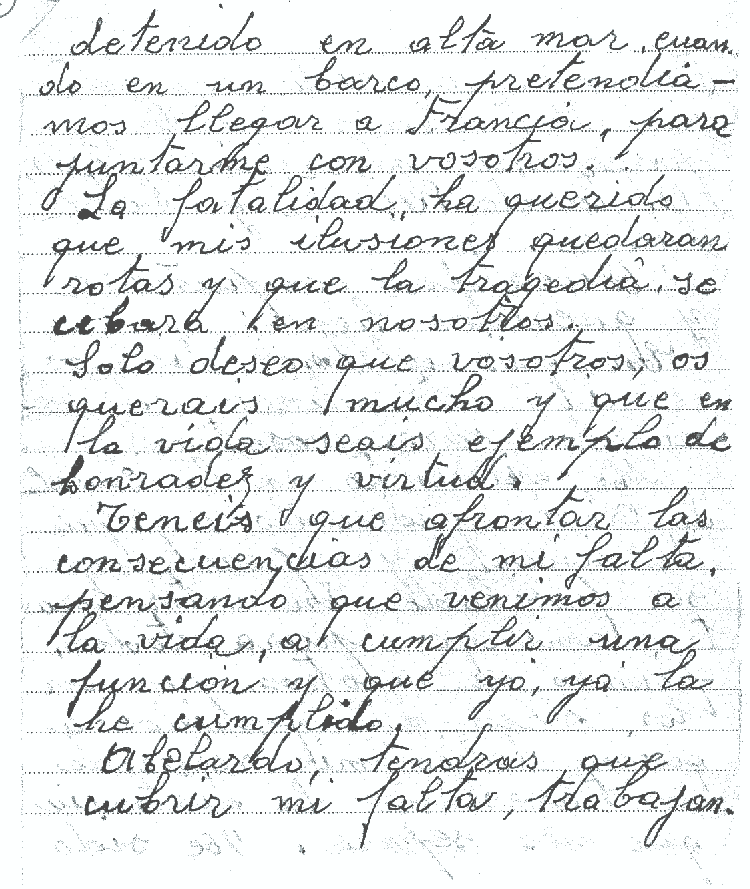 detenido en alta mar, cuan-
do en un barco, pretendia-
mos llegar a Francia, para
juntarme con vosotros.
La fatalidad, ha querido
que mis ilusiones quedaran
rotas y que la tragedia, se
cebara en nosotros.
Solo deseo que vosotros, os
querais mucho y que en
la vida seais ejemplo de
honradez y virtud.
Teneis que afrontar las
consecuencias de mi falta,
pensando que venimos a
la vida, a cumplir una
función y que yo, ya la
he cumplido.
Abelardo, tendras que
cubrir mi falta, trabajan-